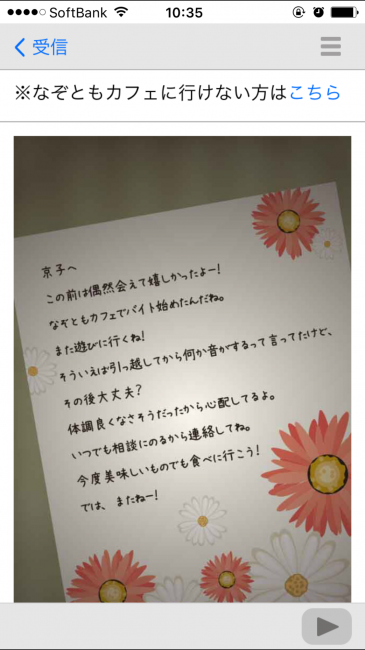 SoftBank 10:35
受信
※なぞともカフェに行けない方はこちら
京子へ
この前は偶然会えて嬉しかったよー!
なぞともカフェでバイト始めたんだね。
また遊びに行くね!
そういえば引っ越してから何か音がするって言ってたけど、
その後大丈夫?
体調良くなさそうだったから心配してるよ。
いつでも相談にのるから連絡してね。
今度美味しいものでも食べに行こう!
では、またねー!